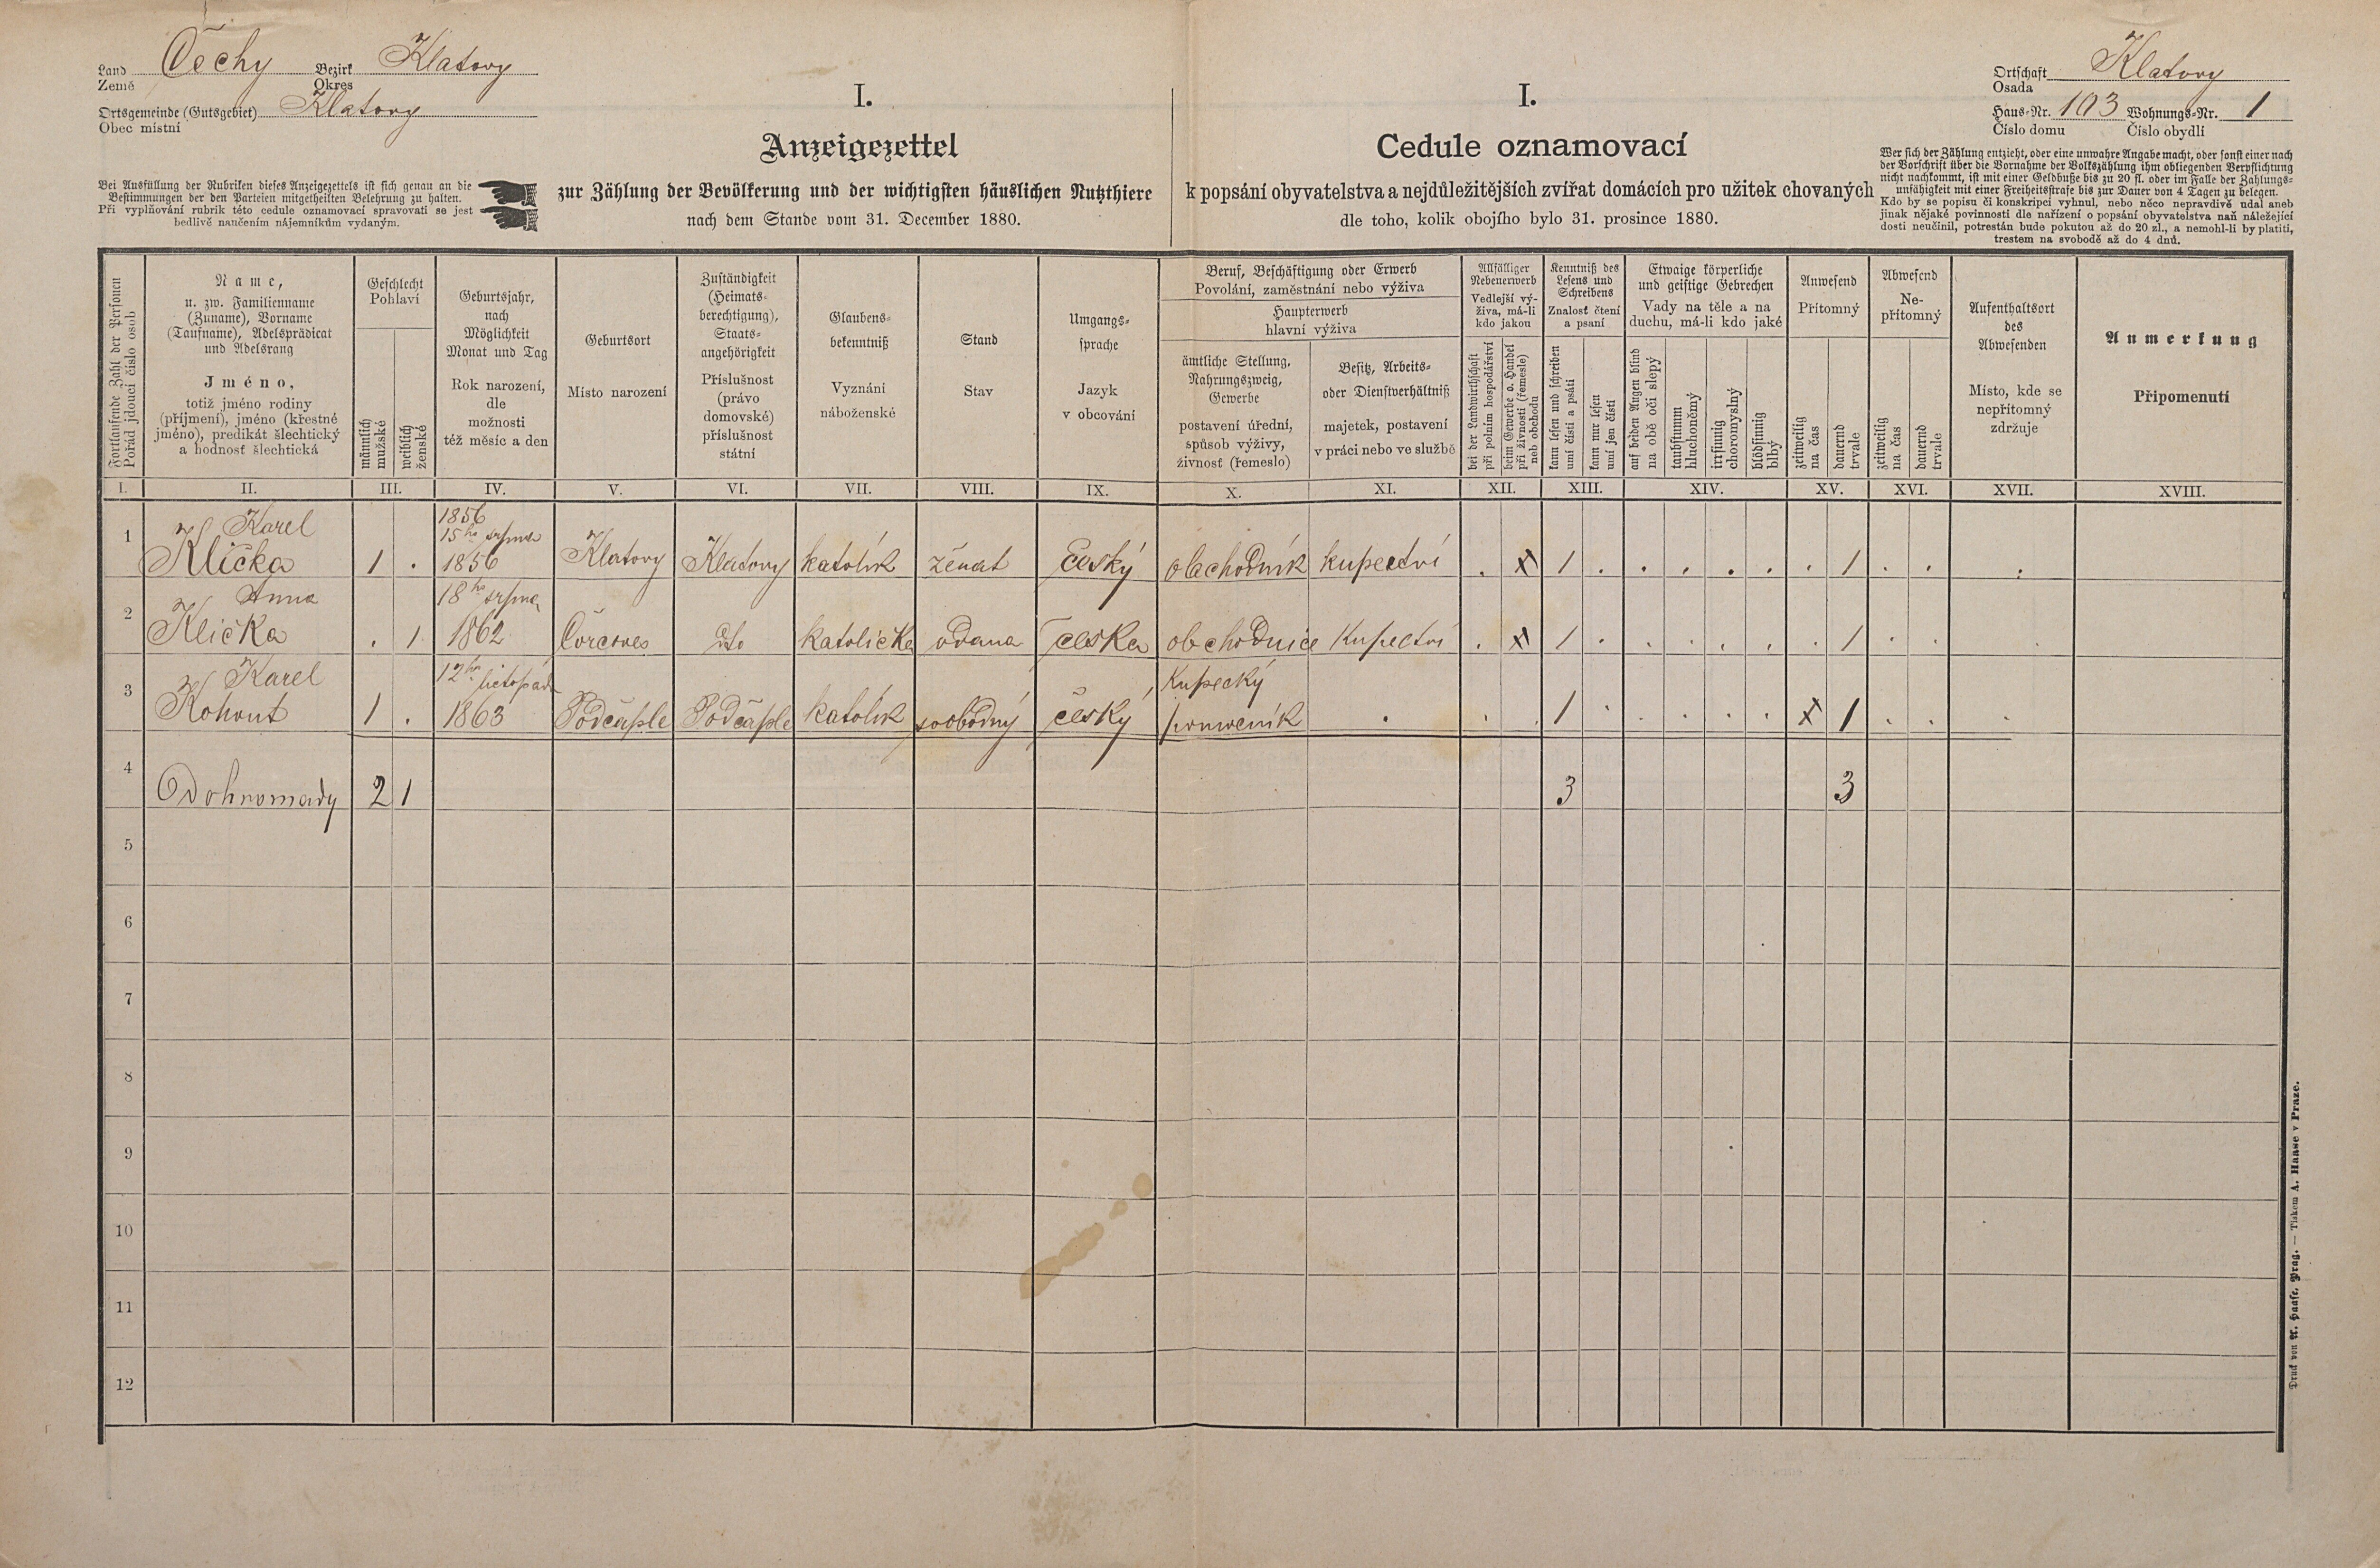 Land Čechy Bezirk Klatovy
Země Okres
Ortsgemeinde (Gutsgebiet) Klatovy
Obec místní
Bei Ausfüllung der Rubriken dieses Anzeigezettels ist sich genau an die
Bestimmungen der den Parteien mitgetheilten Belehrung zu halten.
Při vyplňování rubrik této cedule oznamovací spravovati se jest
bedlivě naučením nájemníkům vydaným.
I.
Anzeigezettel
zur Zählung der Bevölkerung und der wichtigsten häuslichen Nutzthiere
nach dem Stande vom 31. December 1880.
I.
Cedule oznamovací
k popsání obyvatelstva a nejdůležitějších zvířat domácích pro užitek chovaných
dle toho, kolik obojího bylo 31. prosince 1880.
Ortschaft Klatovy
Osada
Haus-Nr. 103 Wohnungs-Nr. 1
Číslo domu Číslo obydlí
Wer sich der Zählung entzieht, oder eine unwahre Angabe macht, oder sonst einer nach
der Vorschrift über die Vornahme der Volkszählung ihm obliegenden Verpflichtung
nicht nachkommt, ist mit einer Geldbuße bis zu 20 fl. oder im Falle der Zahlungs-
unfähigkeit mit einer Freiheitsstrafe bis zur Dauer von 4 Tagen zu belegen.
Kdo by se popisu či konskripci vyhnul, nebo něco nepravdivě udal aneb
jinak nějaké povinnosti dle nařízení o popsání obyvatelstva naň náležející
dosti neučinil, potrestán bude pokutou až do 20 zl., a nemohl-li by platiti,
trestem na svobodě až do 4 dnů.
Fortlaufende Zahl der Personen
Pořád jdoucí číslo osob
Name,
u. zw. Familienname
(Zuname), Vorname
(Taufname), Adelsprädicat
und Adelsrang
Jméno,
totiž jméno rodiny
(příjmení), jméno (křestné
jméno), predikát šlechtický
a hodnosť šlechtická
Geschlecht
Pohlaví
männlich
mužské
weiblich
ženské
Geburtsjahr,
nach
Möglichkeit
Monat und Tag
Rok narození,
dle
možnosti
též měsíc a den
Geburtsort
Místo narození
Zuständigkeit
(Heimats-
berechtigung),
Staats-
angehörigkeit
Příslušnost
(právo
domovské)
příslušnost
státní
Glaubens-
bekenntniß
Vyznání
náboženské
Stand
Stav
Umgangs-
sprache
Jazyk
v obcování
Beruf, Beschäftigung oder Erwerb
Povolání, zaměstnání nebo výživa
Haupterwerb
hlavní výživa
ämtliche Stellung,
Nahrungszweig,
Gewerbe
postavení úřední,
spůsob výživy,
živnosť (řemeslo)
Besitz, Arbeits-
oder Dienstverhältniß
majetek, postavení
v práci nebo ve službě
Allfälliger
Nebenerwerb
Vedlejší vý-
živa, má-li
kdo jakou
bei der Landwirthschaft
při polním hospodářství
beim Gewerbe o. Handel
při živnosti (řemesle)
neb obchodu
Kenntniß des
Lesens und
Schreibens
Znalosť čtení
a psaní
kann lesen und schreiben
umí čísti a psáti
kann nur lesen
umí jen čísti
Etwaige körperliche
und geistige Gebrechen
Vady na těle a na
duchu, má-li kdo jaké
auf beiden Augen blind
na obě oči slepý
taubstumm
hluchoněmý
irrsinnig
choromyslný
blödsinnig
blbý
Anwesend
Přítomný
zeitweilig
na čas
dauernd
trvale
Abwesend
Ne-
přítomný
zeitweilig
na čas
dauernd
trvale
Aufenthaltsort
des
Abwesenden
Místo, kde se
nepřítomný
zdržuje
Anmerkung
Připomenutí
I. II. III. IV. V. VI. VII. VIII. IX. X. XI. XII. XIII. XIV. XV. XVI. XVII. XVIII.
Karel 1856
15ho srpna
1 Klička 1 . 1856 Klatovy Klatovy katolík ženat český obchodník kupectví . x 1 . . . . . . 1 . . .
Anna 18ho srpna
2 Klička . 1 1862 dto katolička vdana česka obchodnice Kupectví . x 1 . . . . . . 1 . . .
Karel 12ho listopadu Kupecký
3 Kohout 1 . 1863 Podčáple Podčáple katolík svobodný český . . . 1 . . . . . x 1 . . .
4 Dohromady 2 1 3 3
5
6
7
8
9
10
11
12
Druck von A. Haase, Prag. — Tiskem A. Haase v Praze.